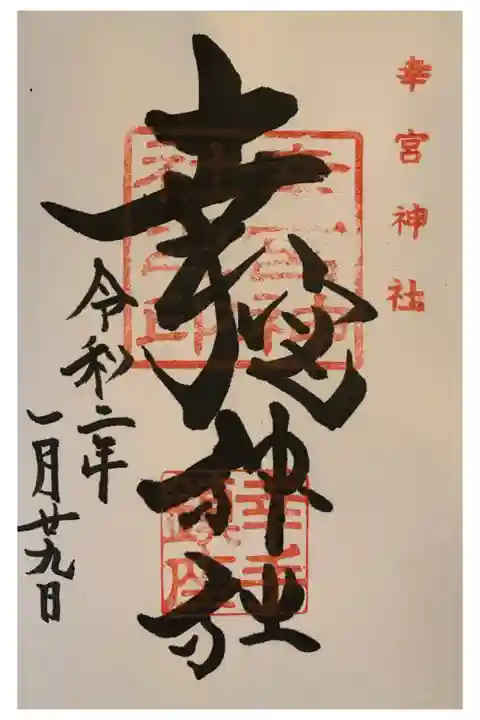 幸宮神社
幸宮神社
令和二年
一月廿九日